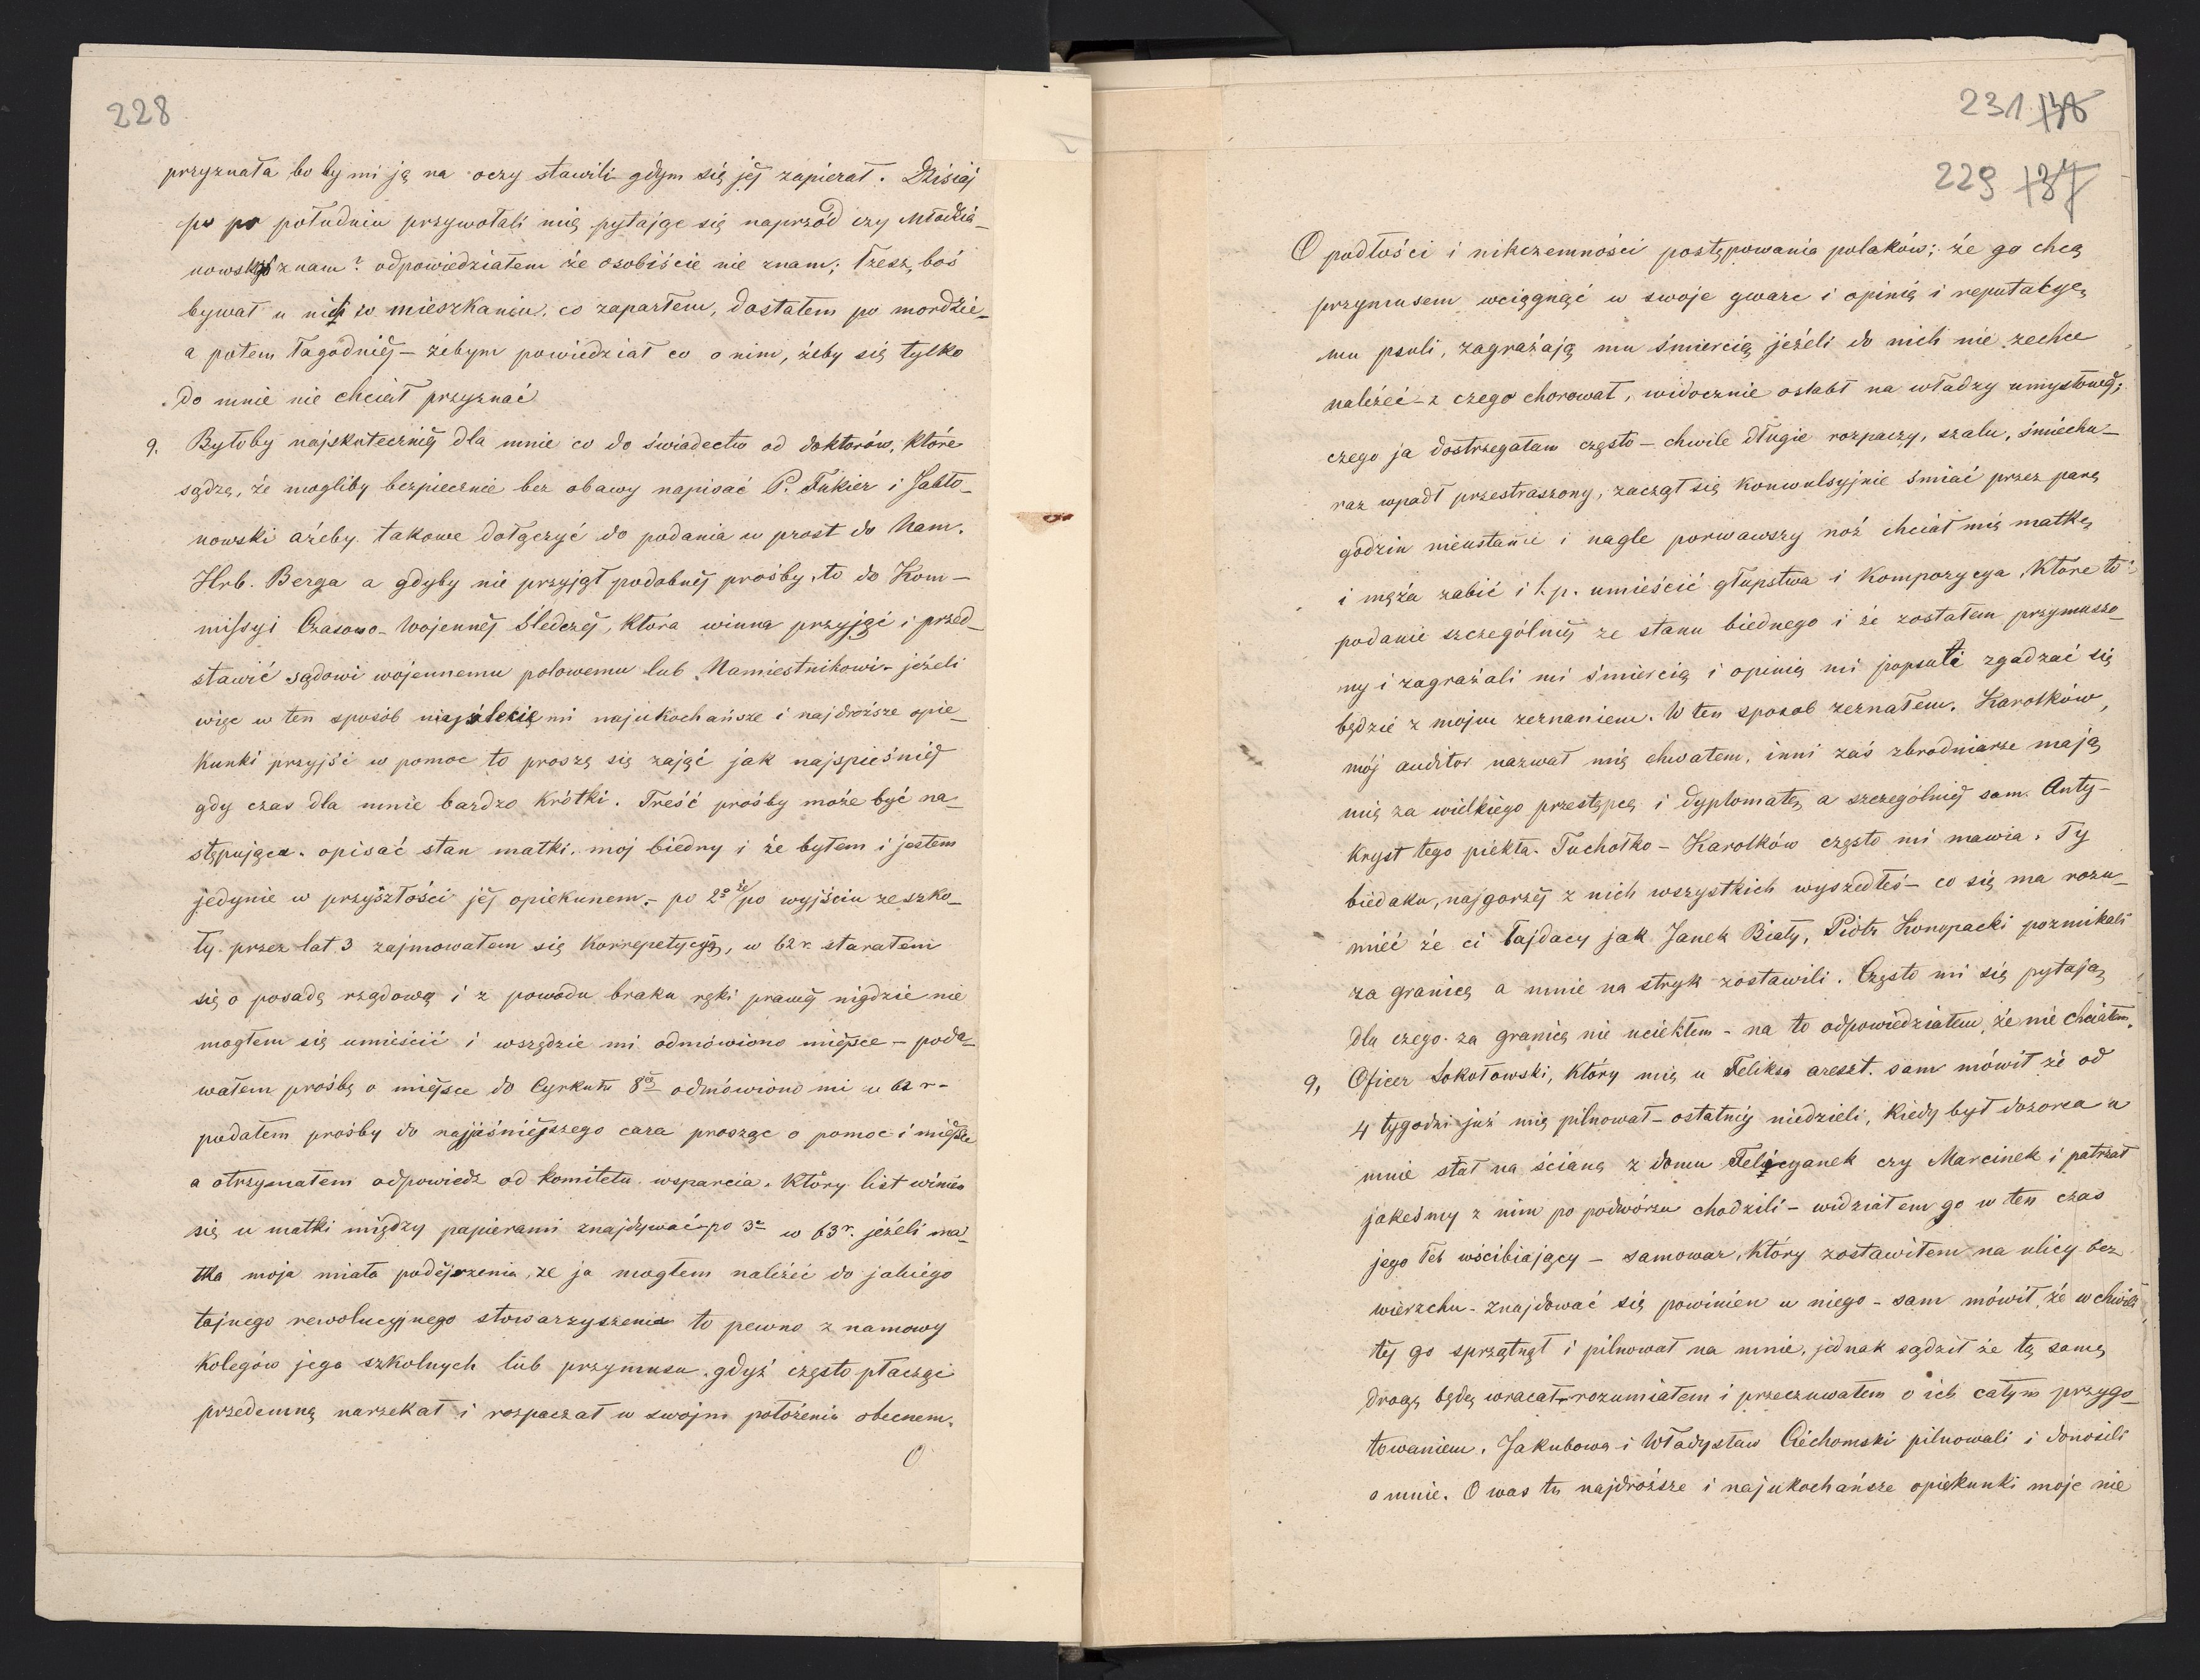 228
przyznała bo by mi ją na oczy stawili gdym się jéj zapierał. Dzisiaj
po południu przywołali mię pytając się naprzód czy Młodzia-
nowskągo znam? odpowiedziałem że osobiście nie znam; Łżesz, boś
bywał u nich w mieszkaniu, co zaparłem, dostałem po mordzie-
a potem łagodniéj – żebym powiedział co o nim, żeby się tylko
do mnie nie chciał przyznać
9. Byłoby najskuteczniéj dla mnie co do świadectw od doktorów, które
sądzę, że mogliby bezpiecznie bez obawy napisać P. Fukier i Jabło-
nowski ażeby takowe dołączyć do podania w prost do Nam.
Hrb. Berga a gdyby nie przyjął podobnéj prośby, to do Kom-
missyi Czasowo-Wojennéj Śledczéj, która winna przyjąć i przed-
stawić sądowi wojennemu polowemu lub Namiestnikowi – jeżeli
więc w ten sposób mi najukochańsze i najdroższe opie-
kunki przyjść w pomoc to proszę się zająć jak najspieśniéj
gdy czas dla mnie bardzo krótki. Treść prośby może być na-
stępująca. opisać stan matki, moj biedny i że byłem i jestem
jedynie w przyszłości jéj opiekunem. – po 2º że po wyjściu ze szko-
ły przez lat 3 zajmowałem się korrepetycyą, w 62 r. starałem
się o posadę rządową i z powodu braku ręki prawéj nigdzie nie
mogłem się umieścić i wszędzie mi odmówiono miéjsce – poda-
wałem prośbę o miéjsce do Cyrkułu 8go odmówiono mi w 62 r –
podałem prośby do najjaśniéjszego cara prosząc o pomoc i miéjsce
a otrzymałem odpowiedź od komitetu wsparcia. Który list winien
się u matki między papierami znajdywać – po 3e w 63 r. jeżeli ma-
tka moja miała podéjrzenia, że ja mogłem należéć do jakiego
tajnego rewolucyjnego stowarzyszenia to pewno z namowy
kolegów jego szkolnych lub przymusu, gdyż często płacząc
przedemną narzekał i rozpaczał w swojm położeniu obecnem.
O
231 138
229 137
O podłości i nikczemności postępowania polaków; że go chcą
przymusem wciągnąć w swoje gwarc i opinię i reputacyę
mu psuli, zagrażają mu śmiercią jeżeli do nich nie zechce
należéć – z czego chorował, widocznie osłabł na władzy umysłowéj;
czego ja dostrzegałam często – chwile długie rozpaczy, szału, śmiechu –
raz wpadł przestraszony, zaczął się konwulsyjnie śmiać przez parę
godzin nieustannie i nagle porwawszy noż chciał mię matkę
i męża zabić i t.p. umieścić głupstwa i kompozycya, które to
podanie szczególniéj ze stanu biednego i że zostałem przymuszo-
ny i zagrażali mi śmiercią i opinię mi popsuli zgadzać się
będzie z mojm zeznaniem. W ten sposob zeznałem. Karolków,
mój auditor nazwał mię chwatem, inni zaś zbrodniarze mają
mię za wielkiego przestępcę i dyplomatę a szczególniéj sam Anty-
kryst tego piekła. Tuchołko – Karolków często mi mawia. Ty
biedaku, najgorzéj z nich wszystkich wyszedłeś – co się ma rozu-
mieć że ci łajdacy jak Janek Biały, Piotr Konopacki pozmikali
za granicę a mnie na stryk zostawili. Często mi się pytają
dla czego za granicę nie uciekłem – na to odpowiedziałem, że nie chciałem.
9, Oficer Sokołowski, który mię u Feliksa areszt. sam mówił że od
4 tygodni już mię pilnował – ostatniéj niedzieli, kiedy był dozorca u
mnie stał na ścianą z domu Felicyanek czy Marcinek i patrzał
jakeśmy z nim po podwórzu chodzili – widziałem go w ten czas
jego łeb wścibiający – samowar, który zostawiłem na ulicy bez
wierzchu – znajdować się powinien u niego – sam mówił, że w chwili
téj go sprzątnął i pilnował na mnie, jednak sądził że tę samę
drogę będę wracał – rozumiałem i przeczuwałem o ich całym przygo-
towaniem. Jakubowa i Władysław Ciechomski pilnowali i donosili
o mnie. O was tu najdroższe i najukochańsze opiekunki moje nie